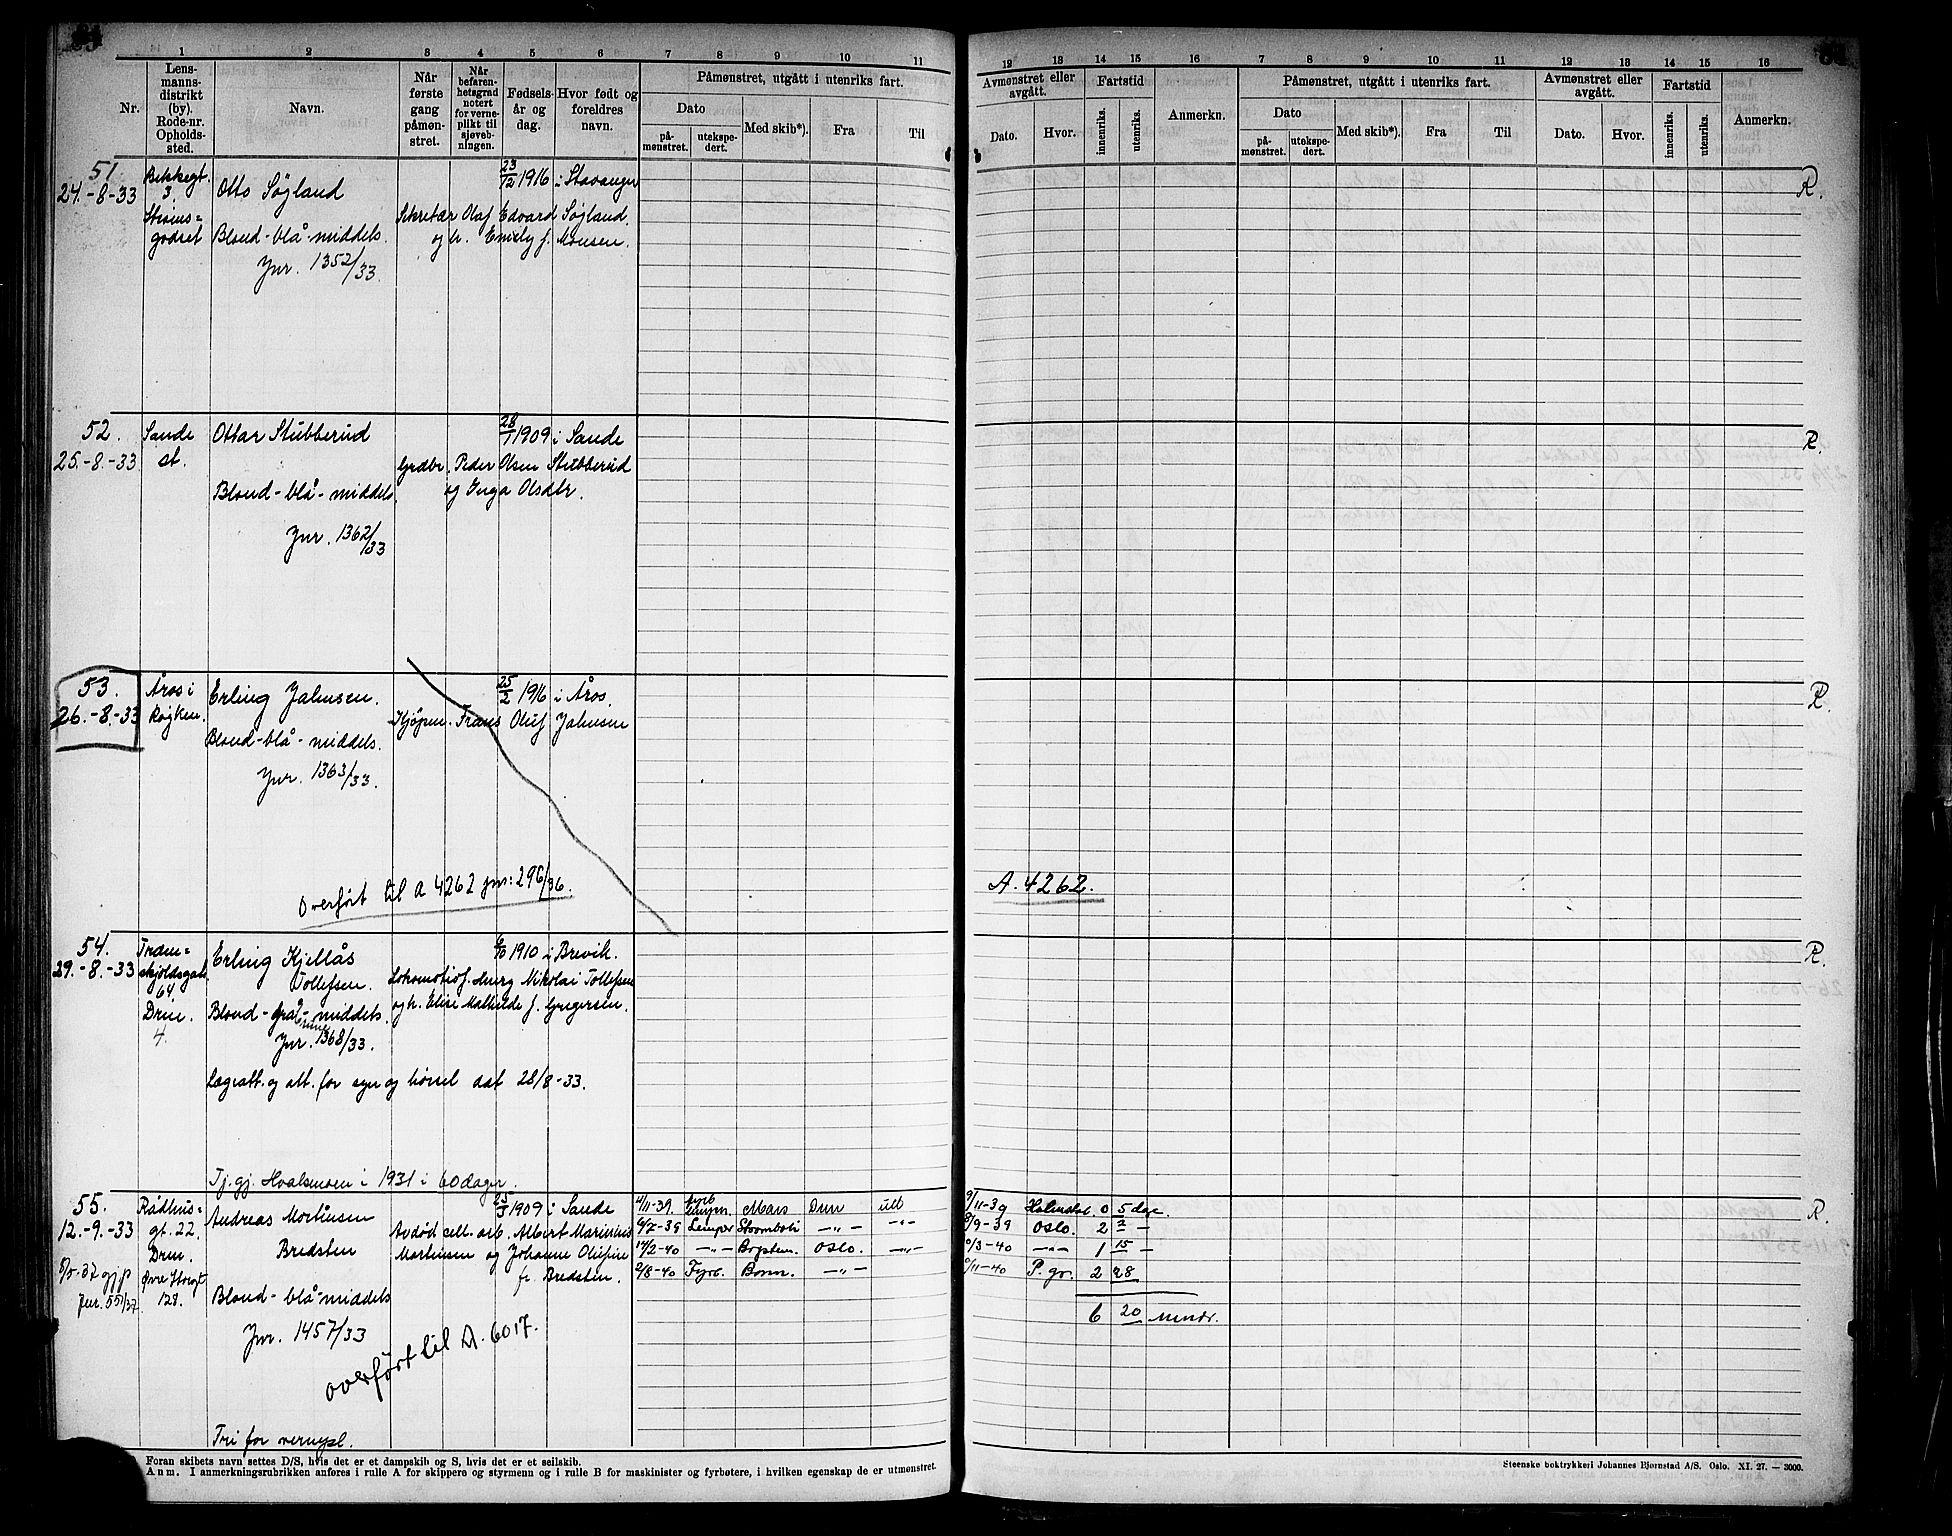 1 2 3 4 5 6 7 8 9 10 11
Nr.
Lens-
manns-
distrikt
(by).
Rode-nr.
Opholds-
sted.
Navn.
Når
første
gang
påmøn-
stret.
Når
befaren-
hetsgrad
notert
for verne-
plikt til
sjøveb-
ningen.
Fødsels-
år og
dag.
Hvor født og
foreldres
navn.
Påmønstret, utgått i utenriks fart.
Dato
på-
mønstret.
utekspe-
dert.
Med skib*).
Fra
Til
12 13 14 15 16 7 8 9 10 11 12 13 14 15 16
Avmønstret eller
avgått.
Dato.
Hvor.
Fartstid
innenriks.
utenriks.
Anmerkn.
Påmønstret, utgått i utenriks fart.
Dato
på-
mønstret.
utekspe-
dert.
Med skib*).
Fra
Til
Avmønstret eller
avgått.
Dato.
Hvor.
Fartstid
innenriks.
utenriks.
Anmerkn.
51
24.-8-33
Bekkegt.
3.
Strøms=
godset
Otto Søyland
Blond-blå-middels.
Jnr. 1352/33.
23/12 1916 i Stavanger
Sekretær Olaf Edvard Søyland
og h. Emely f. Monsen.
R.
52.
25.-8.-33
Sande
st.
Ottar Stubberud
Blond-blå-middels
Jnr. 1362/33
28/1 1909 i Sande
Grdbr. Peder Olsen Stubberud
og Inga Olsdtr.
R.
53.
26.-8.-33
Åros i
Røyken.
Erling Jahnsen.
Blond-blå-middels.
Jnr. 1363/33.
25/2 1916 i Åros.
Kjøpm. Frans Oluf Jahnsen
Overført til A 4262 jnr: 296/36.
A. 4262.
R.
54.
29.-8.-33
Tram=
skjoldsgate
64
Drm.
4.
Erling Kjellås
Tollefsen.
Blond-grå-middels.
Jnr. 1368/33.
1910 i Brevik.
Lokomotivf. Nikolai Tollefsen
og h. Elise Mathilde f. Gregersen.
Lægeatt. og att. for syn og hørsel dat 28/8-33.
Tj. gj. Hvalsmoen i 1931 i 60 dager.
R.
55.
12.-9.-33
8/5-37 gjp
Jnr. 551/37
Rådhus=
gt. 22.
Drm.
Øvre Storgt
129.
Andreas Mortinsen
Bredsten
Blond-blå-middels
Jnr. 1457/33
overført til A. 6017.
Tri for vernepl.
25/7 1909 i Sande
Avdød cell. arb. Albert Marinius
Martinsen og Johanne Olufine
f. Bredsten.
4/11-39. Mars Drm utl 9/11-39 Halmstad 0 5 dage.
6/7-39 Lemper Stromboli -"- -"- 8/9-39 Oslo. 2 2 -
14/2-40 -"- Oslo. -"- /3-40 -"- 1 15 -
2/8-40 Fyrb. Bonn. -"- /11-40 P. gr. 2 28
6 20 mndr.
R.
Foran skibets navn settes D/S, hvis det er et dampskib og S, hvis det er et seilskib.
Anm. I anmerkningsrubrikken anføres i rulle A for skippere og styrmenn og i rulle B for maskinister og fyrbøtere, i hvilken egenskap de er utmønstret.
Steenske boktrykkeri Johannes Bjørnstad A/S. Oslo. XI. 27. — 3000.